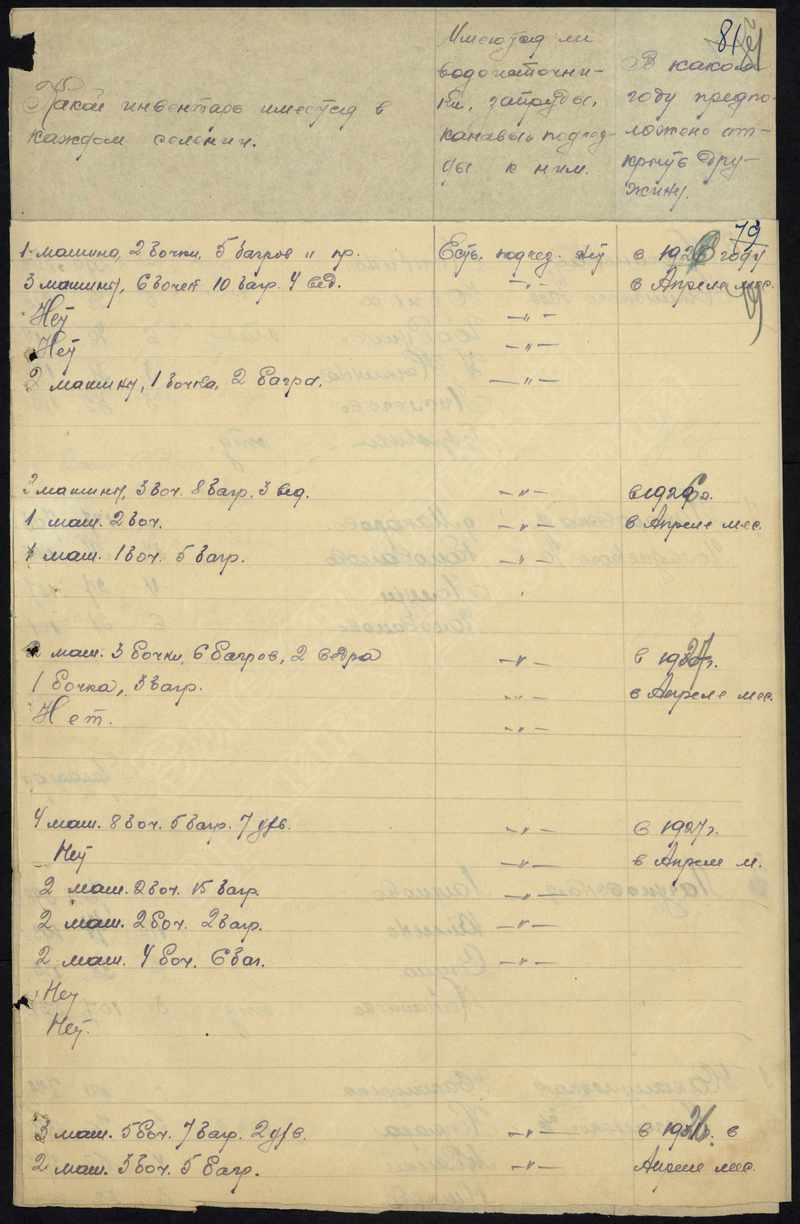 81
Какой инвентарь имеется в
каждом селении.
Имеются ли
водоисточни-
ки, запруды,
канавы подъез-
ды к ним.
В каком
году предпо-
ложено от-
крыть дру-
жину.
79
1 машина, 2 бочки, 5 багров и пр. Есть. подъезд. Нет в 1926 году
3 машины, 6 бочек 10 багр. 4 вед. —"— в Апреле мес.
Нет —"—
Нет —"—
2 машины, 1 бочка, 2 багра. —"—
3 машины, 3 боч. 8 багр. 3 вед. —"— в 1926 г.
1 маш. 2 боч. —"— в Апреле мес.
1 маш. 1 боч. 5 багр. —"—
2 маш. 3 бочки, 6 багров, 2 ведра —"— в 1927 г.
1 бочка, 3 багр. —"— в Апреле мес.
Нет. —"—
4 маш. 8 боч. 5 багр. 7 —"— в 1927 г.
Нет —"— в Апреле м.
2 маш. 2 боч. 15 багр —"—
2 маш. 2 боч. 2 багр. —"—
2 маш. 4 боч. 6 баг. —"—
Нет
Нет.
3 маш. 5 боч. 7 багр. 2 —"— в г. в
2 маш. 3 боч. 5 багр. —"— Апреле мес.